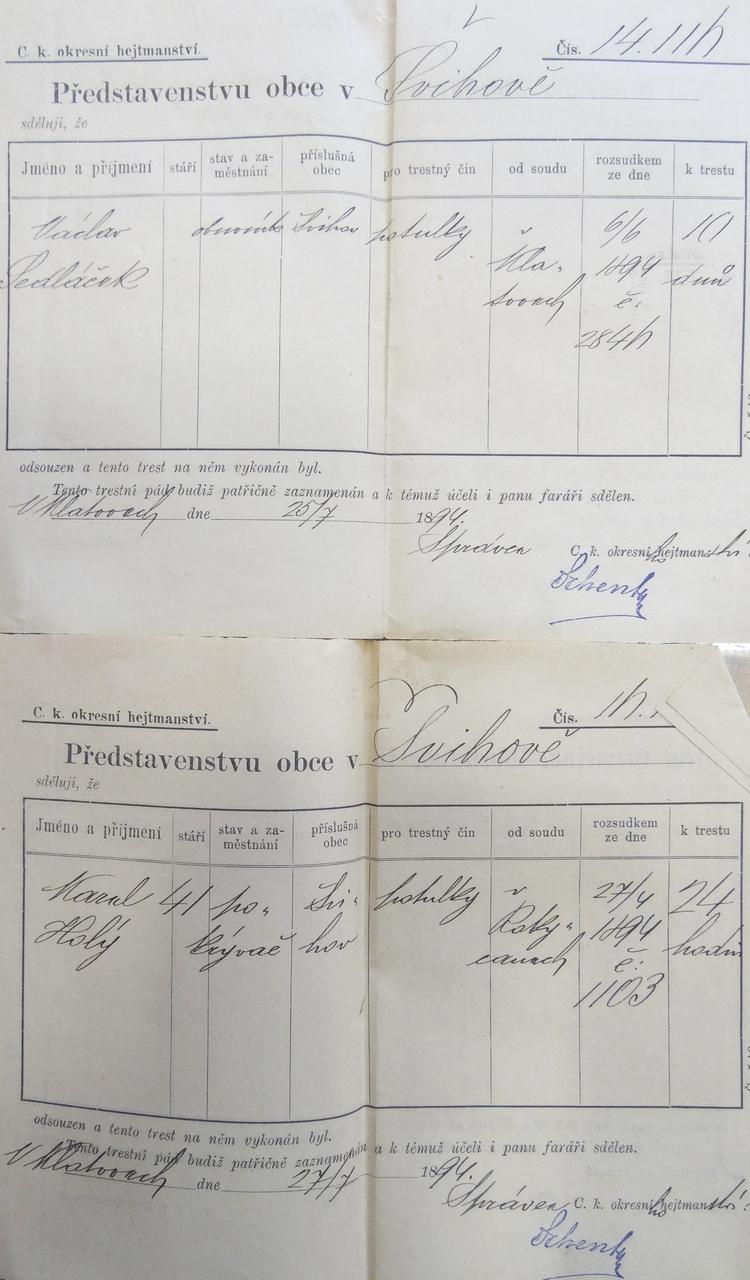 C. k. okresní hejtmanství.
Čís. 14.114
Představenstvu obce v Švihově
sděluji, že
Jméno a příjmení stáří stav a za-městnání příslušná obec pro trestný čin od soudu rozsudkem ze dne k trestu
Václav obuvník Švihov potulky v 6/6 10
Sedláček Kla- 1894 dnů
tovech č:
2844
odsouzen a tento trest na něm vykonán byl.
Tento trestní pád budiž patřičně zaznamenán a k témuž účeli i panu faráři sdělen.
V Klatovech dne 25/7 1894.
Správce C. k. okresního hejtmanství:
C. k. okresní hejtmanství.
Čís. 14.
Představenstvu obce v Švihově
sděluji, že
Jméno a příjmení stáří stav a za-městnání příslušná obec pro trestný čin od soudu rozsudkem ze dne k trestu
Karel 41 po- Švi- potulky v 27/4 24
Holý krývač hov Roky- 1894 hodin
canech č:
1103
odsouzen a tento trest na něm vykonán byl.
Tento trestní pád budiž patřičně zaznamenán a k témuž účeli i panu faráři sdělen.
V Klatovech dne 27/7 1894.
Správce C. k. okresního hejtmanství: